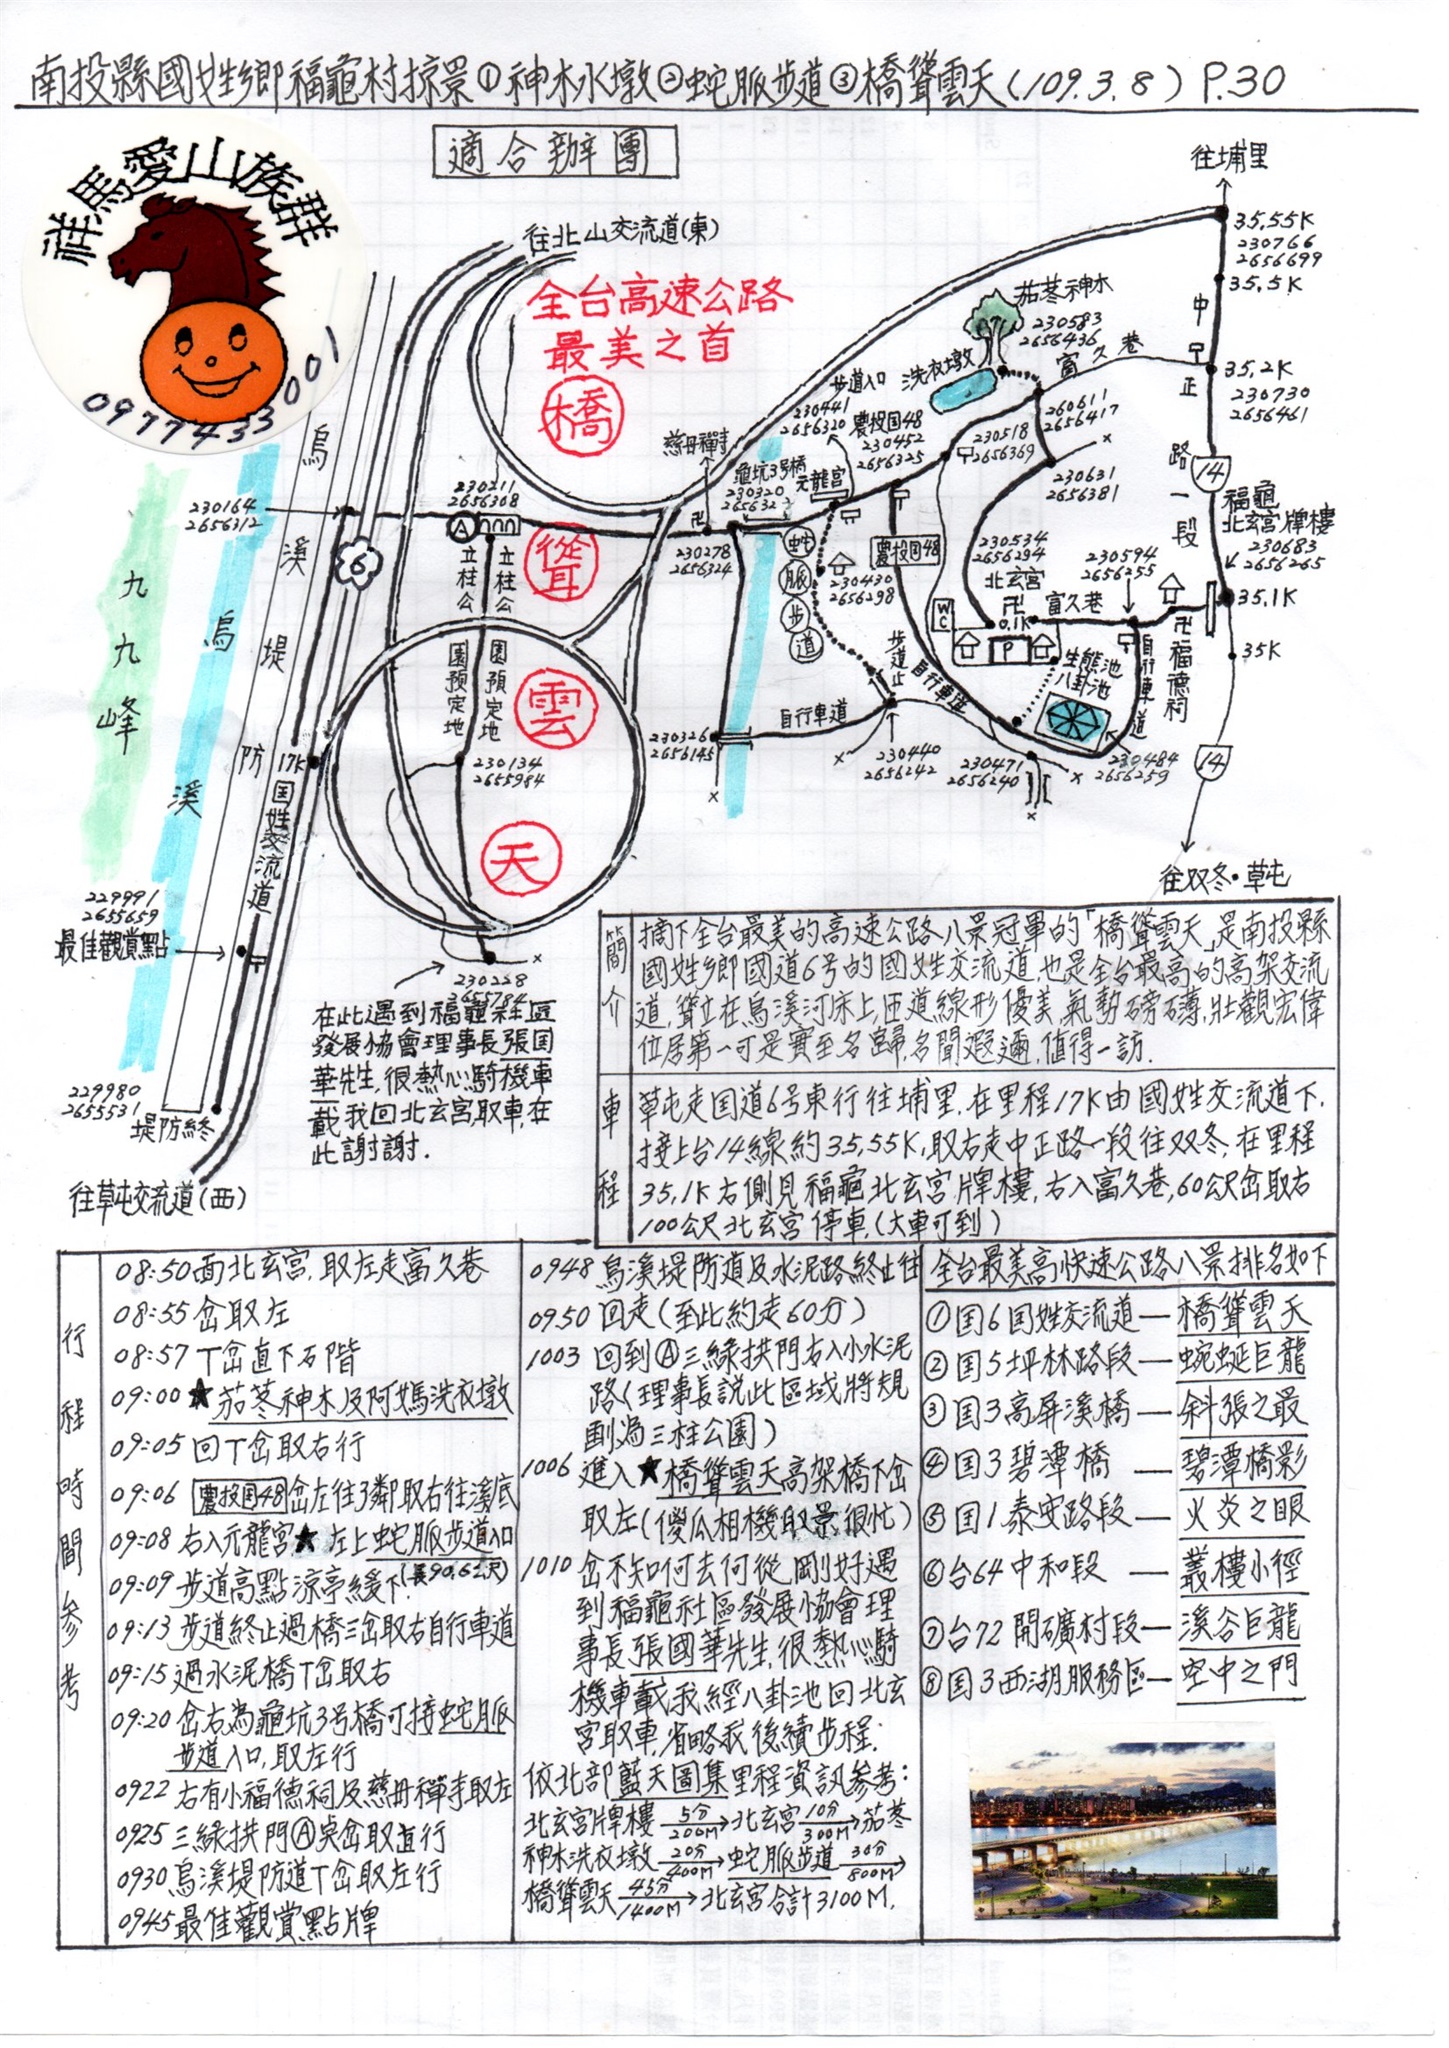 南投縣國姓鄉福龜村掠景①神木水墩②蛇脈步道③橋聳雲天(109.3.8) P.30
適合辦團
祥馬愛山族群
0977433001
往埔里
往北山交流道(東)
全台高速公路
最美之首
橋
聳
雲
天
35.55K
230766
2656699
35.5K
中正路一段
35.2K
230730
2656461
14
福龜
北玄宮牌樓
230683
2656265
35.1K
35K
14
往双冬·草屯
茄苳神木
230583
2656436
富久巷
洗衣墩
步道入口
230441
2656320
農投国48
230452
2656325
230518
2656369
260611
2656417
230631
2656381
慈母禪寺
龜坑3号橋
230320
265632
元龍宮
230211
2656308
A
230164
2656312
6
九九峰
烏溪
烏溪堤防
17K
国姓交流道
立柱公園預定地
立柱公園預定地
230278
2656324
蛇脈步道
230430
2656298
農投国48
230534
2656294
北玄宮
卍
0.1K
WC
P
富久巷
230594
2656255
卍福德祠
自行車道
生態池
八卦池
步道止
自行車道
自行車道
230326
2656145
230440
2656242
230471
2656240
230484
2656259
230134
2655984
229991
2655659
最佳觀賞點
230228
2655784
229980
2655531
堤防終
往草屯交流道(西)
在此遇到福龜社區
發展協會理事長張国
華先生,很熱心騎機車
載我回北玄宮取車,在
此謝謝.
簡介
摘下全台最美的高速公路八景冠軍的「橋聳雲天」是南投縣
國姓鄉國道6号的國姓交流道,也是全台最高的高架交流
道,聳立在烏溪河床上,匝道線形優美,氣勢磅礡,壯觀宏偉
位居第一可是實至名歸,名聞遐邇,值得一訪.
車程
草屯走国道6号東行往埔里,在里程17K由國姓交流道下,
接上台14線約35.55K,取右走中正路一段往双冬,在里程
35.1K右側見福龜北玄宮牌樓,右入富久巷,60公尺岔取右
100公尺北玄宮停車,(大車可到)
行程時間參考
08:50面北玄宮,取左走富久巷
08:55岔取左
08:57丁岔直下石階
09:00★茄苳神木及阿媽洗衣墩
09:05回丁岔取右行
09:06農投国48岔左往3鄰取右往溪底
09:08右入元龍宮★左上蛇脈步道入口
09:09步道高點涼亭緩下(長90.6公尺)
09:13步道終止過橋三岔取右自行車道
09:15過水泥橋丁岔取右
09:20岔右為龜坑3号橋可接蛇脈
步道入口,取左行
0922右有小福德祠及慈母禪寺取左
0925三綠拱門Ⓐ叉岔取直行
0930烏溪堤防道丁岔取左行
0945最佳觀賞點牌
0948烏溪堤防道及水泥路終止往
0950回走(至此約走60分)
1003 回到Ⓐ三綠拱門右入小水泥
路(理事長說此區域將規
劃為三柱公園)
1006進入★橋聳雲天高架橋下岔
取左(傻瓜相機取景很忙)
1010 岔不知何去何從剛好遇
到福龜社區發展協會理
事長張國華先生,很熱心騎
機車載我經八卦池回北玄
宮取車,省略我後續步程;
依北部藍天圖集里程資訊參考:
北玄宮牌樓 5分/200M→北玄宮10分/300M→茄苳
神木洗衣墩20分/400M→蛇脈步道30分/800M→
橋聳雲天45分/1400M→北玄宮合計3100M.
全台最美高快速公路八景排名如下
①国6国姓交流道—橋聳雲天
②国5坪林路段—蜿蜒巨龍
③国3高屏溪橋—斜張之最
④国3碧潭橋—碧潭橋影
⑤国1泰安路段—火炎之眼
⑥台64中和段—叢樓小徑
⑦台72開礦村段—溪谷巨龍
⑧国3西湖服務區—空中之門